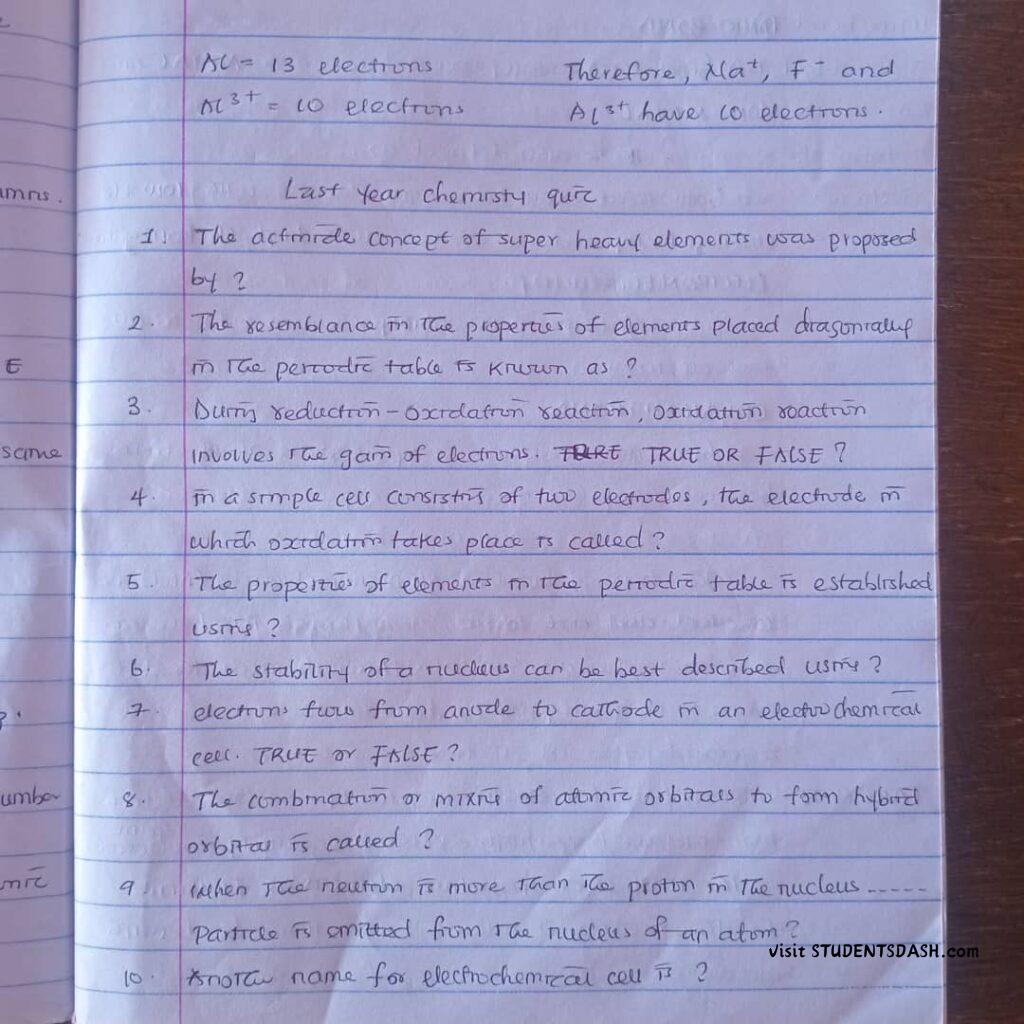 Al = 13 electrons
Al3+ = 10 electrons
Therefore, Na+, F- and
Al3+ have 10 electrons.
Last Year chemistry quiz
1. The actinide concept of super heavy elements was proposed
by ?
2. The resemblance in the properties of elements placed diagonally
in the periodic table is known as ?
3. During reduction-oxidation reaction, oxidation reaction
involves the gain of electrons. TRUE OR FALSE ?
4. in a simple cell consisting of two electrodes, the electrode in
which oxidation takes place is called ?
5. The properties of elements in the periodic table is established
using ?
6. The stability of a nucleus can be best described using ?
7. electrons flow from anode to cathode in an electrochemical
cell. TRUE or FALSE ?
8. The combination or mixing of atomic orbitals to form hybrid
orbital is called ?
9. When the neutron is more than the proton in the nucleus -----
particle is emitted from the nucleus of an atom?
10. Another name for electrochemical cell is ?
umns.
E
same
umber
mic
visit STUDENTSDASH.com